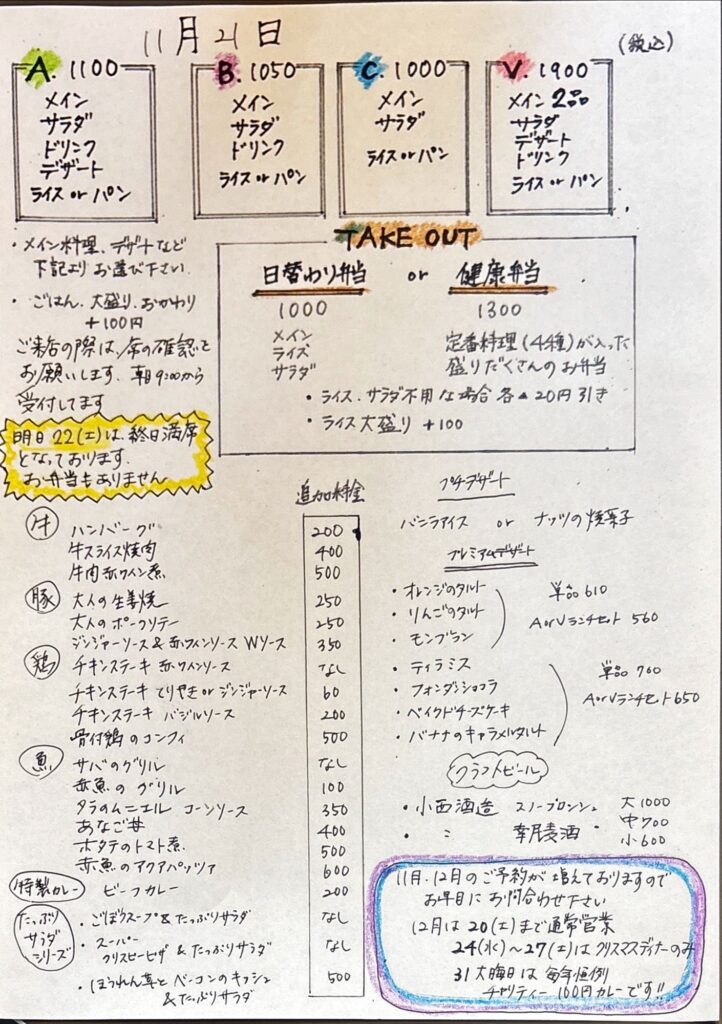 11月21日
(税込)
A. 1100
メイン
サラダ
ドリンク
デザート
ライス or パン
B. 1050
メイン
サラダ
ドリンク
ライス or パン
C. 1000
メイン
サラダ
ライス or パン
V. 1900
メイン 2品
サラダ
デザート
ドリンク
ライス or パン
・メイン料理、デザートなど
下記より お選び下さい
・ごはん、大盛り、おかわり
+100円
ご来店の際は、席の確認を
お願いします、朝9:00から
受付してます
明日 22(土)は、終日満席
となっております。
お弁当もありません
TAKE OUT
日替わり弁当 or 健康弁当
1000
メイン
ライス
サラダ
1300
定番料理(4、4種)が入った
盛りだくさんのお弁当
・ライス、サラダ不用な場合 各▲20円引き
・ライス大盛り +100
追加料金
牛 ハンバーグ 200
牛スライス焼肉 400
牛肉赤ワイン煮 500
豚 大人の生姜焼 250
大人のポークソテー 250
ジンジャーソース & 赤ワインソース Wソース 350
鶏 チキンステーキ 赤ワインソース なし
チキンステーキ てりやき or ジンジャーソース 60
チキンステーキ バジルソース 200
骨付鶏のコンフィ 500
魚 サバのグリル なし
赤魚のグリル 100
タラのムニエル コーンソース 350
あなご丼 400
ホタテのトマト煮 500
赤魚のアクアパッツァ 600
特製カレー ビーフカレー 200
たっぷりサラダシリーズ
・ごぼうスープ & たっぷりサラダ なし
・スーパー
クリスピーピザ & たっぷりサラダ なし
・ほうれん草とベーコンのキッシュ
& たっぷりサラダ 500
プチデザート
バニラアイス or ナッツの焼菓子
プレミアムデザート
・オレンジのタルト
・りんごのタルト
・モンブラン
単品 610
A or V ランチセット 560
・ティラミス
・フォンダンショコラ
・ベイクドチーズケーキ
・バナナのキャラメルタルト
単品 700
A or V ランチセット 650
クラフトビール
・小西酒造 スノーブロンシュ
・〃 幕末麦酒
大 1000
中 700
小 600
11月、12月のご予約が増えておりますので
お早目にお問合わせ下さい
12月は20(土)まで通常営業
24(水)〜27(土)はクリスマスディナーのみ
31大晦日は毎年恒例
チャリティー100円カレーです!!